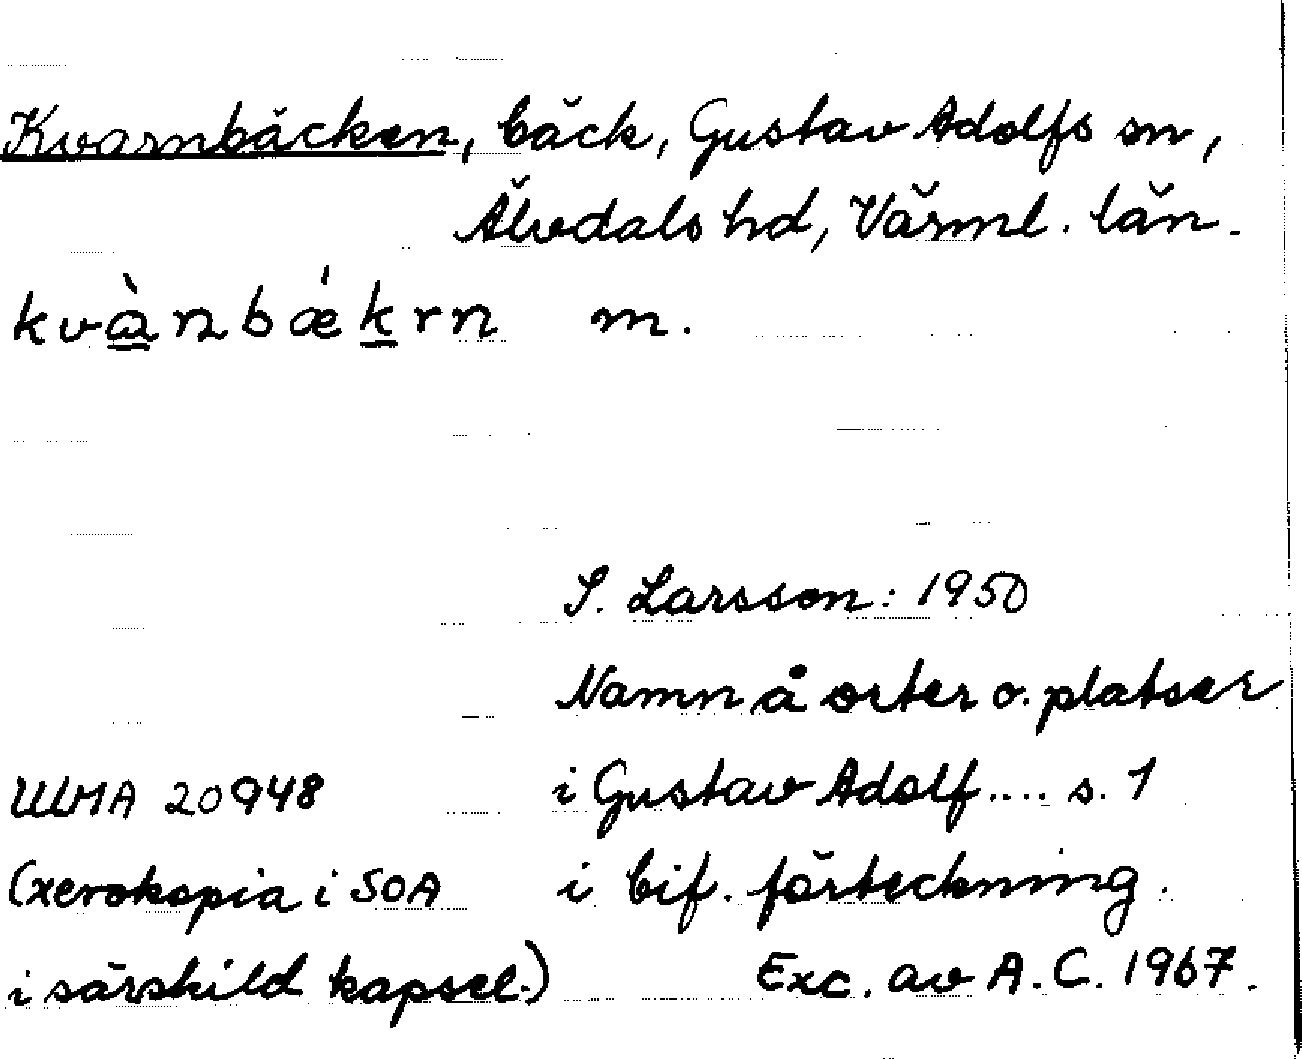 Kvarnbäcken, bäck, Gustav Adolfs sn,
Älvdals hd, Värml. län.
kvàɳbækrn m.
S. Larsson: 1950
Namn å orter o. platser
ULMA 20948 i Gustav Adolf.... s. 1
(xerokopia i SOA i bif. förteckning.
i särskild kapsel.) Exc. av A. C. 1967.